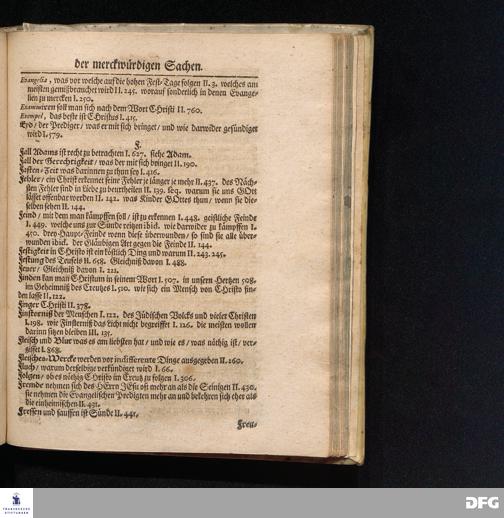 der merckwürdigen Sachen.
Evangelia, was vor welche auf die hohen Fest-Tage folgen II. 3. welches am
meisten gemißbrauchet wird II. 245. worauf sonderlich in denen Evange-
lien zu mercken I. 250.
Examiniren soll man sich nach dem Wort Christi II. 760.
Exempel, das beste ist Christus I. 415.
Eyd/ der Prediger/ was er mit sich bringet/ und wie darwider gesündiget
wird I. 579.
F.
Fall Adams ist recht zu betrachten I. 627. siehe Adam.
Fall der Gerechtigkeit/ was der mit sich bringet II. 190.
Fasten-Zeit was darinnen zu thun sey I. 416.
Fehler/ ein Christ erkennet seine Fehler je länger je mehr II. 437. des Näch-
sten Fehler sind in Liebe zu beurtheilen II. 139. seq. warum sie uns GOtt
lässet offenbar werden II. 142. was Kinder GOttes thun/ wenn sie die-
selben sehen II. 144.
Feind/ mit dem man kämpffen soll/ ist zu erkennen I. 448. geistliche Feinde
I. 449. welche uns zur Sünde reitzen ibid. wie darwider zu kämpffen I.
450. drey Haupt-Feinde wenn diese überwunden/ so sind sie alle über-
wunden ibid. der Gläubigen Art gegen die Feinde II. 144.
Festigkeit in Christo ist ein köstlich Ding und warum II. 243. 245.
Festung des Teufels II. 658. Gleichniß davon I. 488.
Feuer/ Gleichniß davon I. 211.
Finden kan man Christum in seinem Wort I. 507. in unsern Hertzen 508.
im Geheimniß des Creutzes I. 510. wie sich ein Mensch von Christo fin-
den lasse II. 122.
Finger Christi II. 378.
Finsterniß der Menschen I. 122. des Jüdischen Volcks und vieler Christen
I. 198. wie Finsterniß das Licht nicht begreiffet I. 126. die meisten wollen
darinn sitzen bleiben III. 135.
Fleisch und Blut was es am liebsten hat/ und wie es/ was nöthig ist/ ver-
gisset I. 868.
Fleisches-Wercke werden vor indifferente Dinge ausgegeben II. 260.
Fluch/ warum derselbige verkündiget wird I. 66.
Folgen/ ob es nöthig Christo im Creutz zu folgen I. 306.
Fremde nehmen sich des HErrn JEsu oft mehr an als die Seinigen II. 430.
sie nehmen die Evangelischen Predigten mehr an und bekehren sich eher als
die einheimischen II. 431.
Fressen und sauffen ist Sünde II. 441.
Freu-
FRANCKESCHE
STIFTUNGEN
DFG